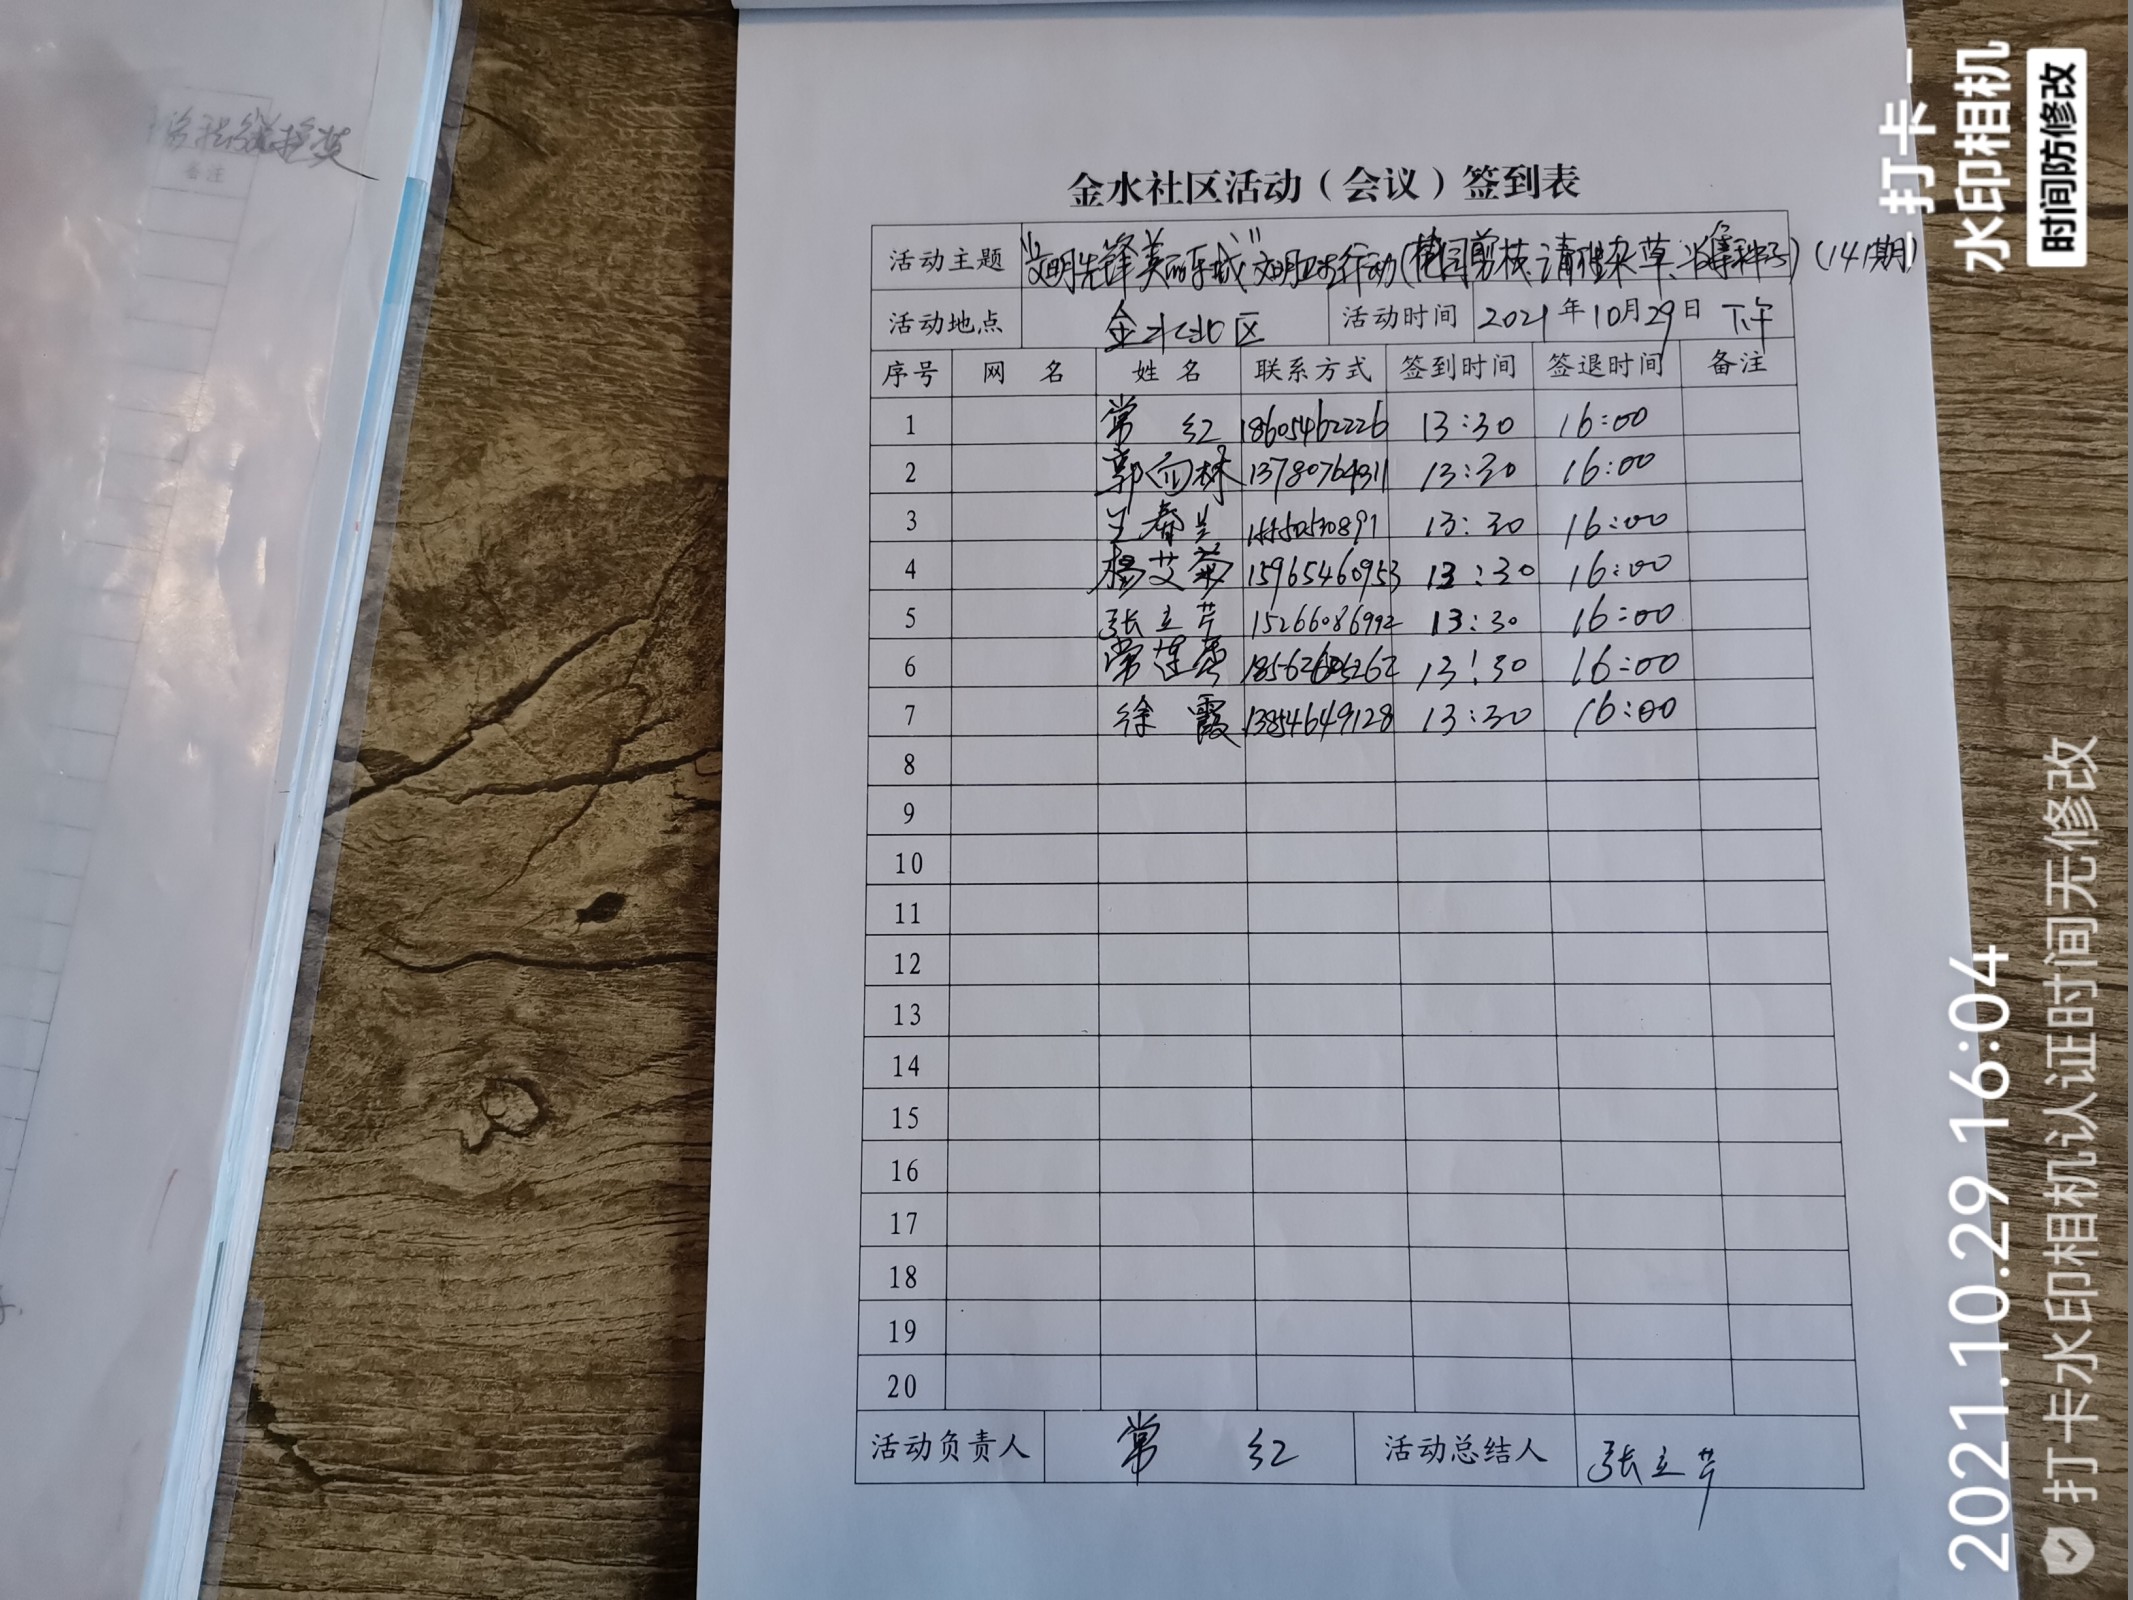 金水社区活动（会议）签到表
活动主题 "文明先锋 美丽乐城"文明卫生行动(花园剪枝、清理杂草、收集种子)(141期)
活动地点 金水社区 活动时间 2021年10月29日 下午
序号 网 名 姓 名 联系方式 签到时间 签退时间 备注
1 常 红 18605462226 13:30 16:00
2 郭向林 13780764311 13:30 16:00
3 王春兰 13:30 16:00
4 杨艾菊 15965460953 13:30 16:00
5 张立芹 15266086992 13:30 16:00
6 常莲香 13:30 16:00
7 徐 霞 13854649128 13:30 16:00
8
9
10
11
12
13
14
15
16
17
18
19
20
活动负责人 常 红 活动总结人 张立芹
备注
打卡
水印相机
时间防修改
2021.10.29 16:04
打卡水印相机认证时间无修改